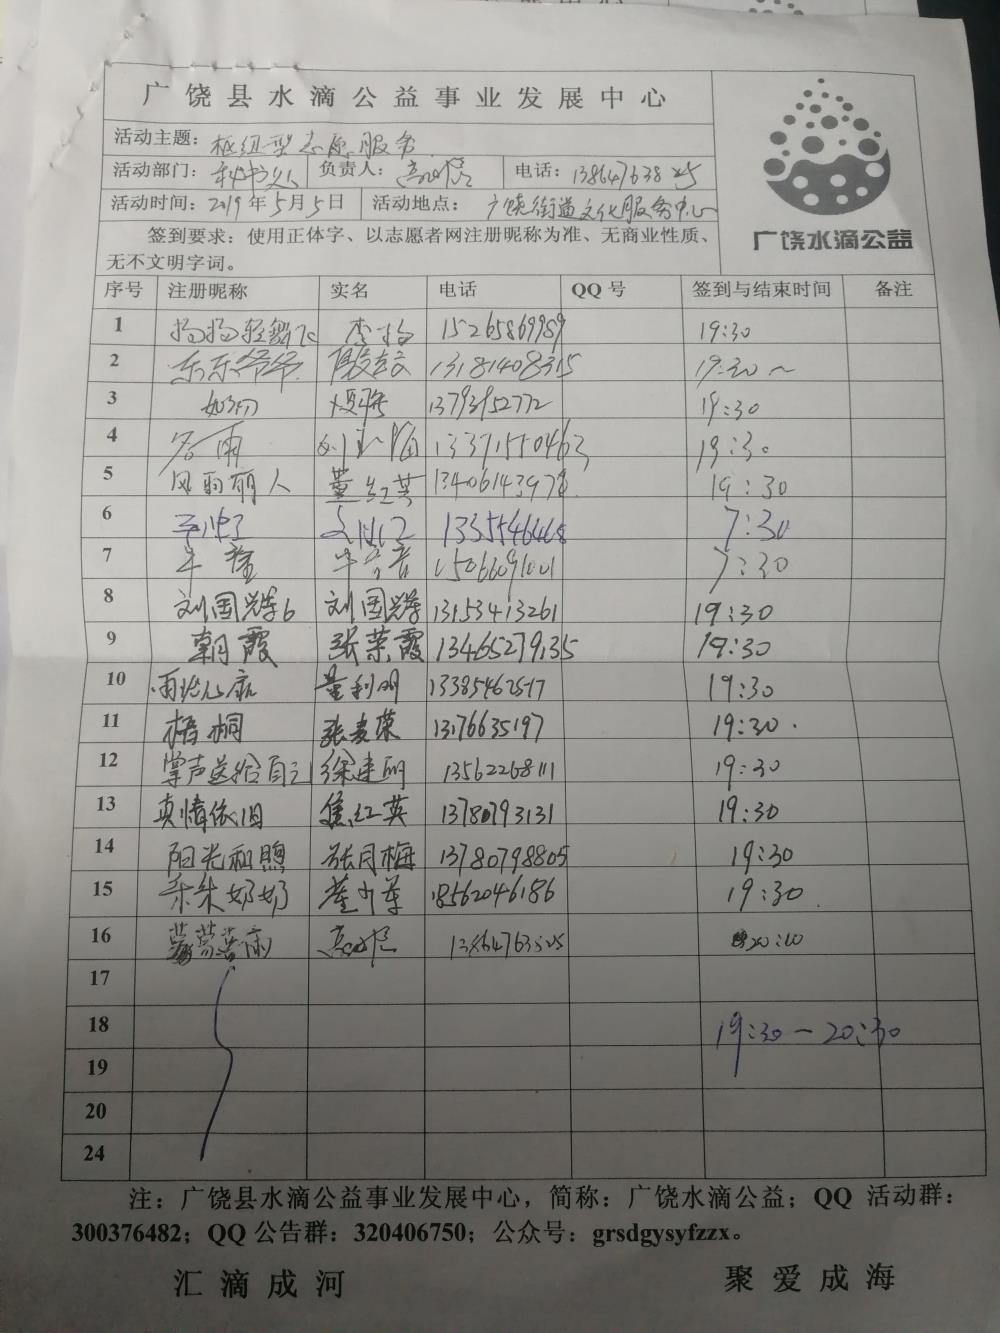 广饶县水滴公益事业发展中心
活动主题：枢纽型志愿服务
活动部门：秘书处 负责人： 电话：
活动时间：2019年5月5日 活动地点：广饶街道文化服务中心
签到要求：使用正体字、以志愿者网注册昵称为准、无商业性质、
无不文明字词。
广饶水滴公益
序号 注册昵称 实名 电话 QQ号 签到与结束时间 备注
1 扬扬轻舞飞 李扬 15265869989 19:30
2 东东爷爷 13181408315 19:30~
3 如初 13793952772 19:30
4 谷雨 13371550463 19:30
5 风雨丽人 董红英 19:30
6 7:30
7 15066091001 7:30
8 刘国学6 刘国学 13153413261 19:30
9 朝霞 张荣霞 13465279135 19:30
10 19:30
11 梧桐 13176635197 19:30
12 掌声送给自己 徐建丽 13562268111 19:30
13 真情依旧 焦红英 13780793131 19:30
14 阳光和煦 张月梅 13780798805 19:30
15 朵朵奶奶 18562046186 19:30
16 20:10
17
18 19:30—20:30
19
20
24
注：广饶县水滴公益事业发展中心，简称：广饶水滴公益；QQ 活动群：
300376482；QQ公告群：320406750；公众号：grsdgysyfzzx。
汇滴成河 聚爱成海